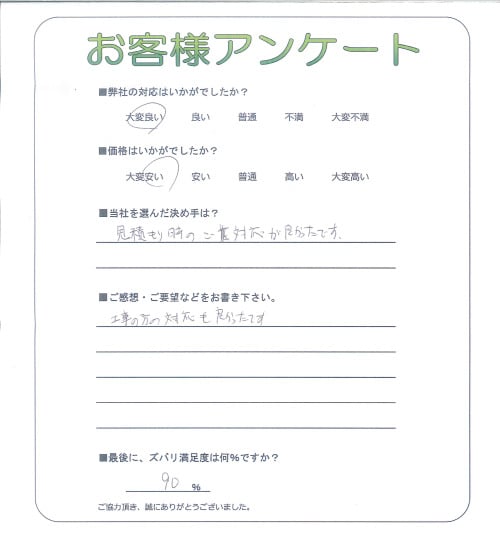 お客様アンケート
■弊社の対応はいかがでしたか？
大変良い 良い 普通 不満 大変不満
■価格はいかがでしたか？
大変安い 安い 普通 高い 大変高い
■当社を選んだ決め手は？
見積もり時の 対応が良かったです。
■ご感想・ご要望などをお書き下さい。
工事の方の対応も良かったです
■最後に、ズバリ満足度は何%ですか？
90 %
ご協力頂き、誠にありがとうございました。